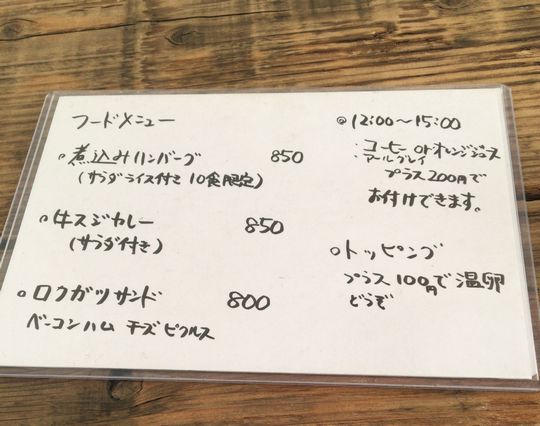 フードメニュー
○煮込みハンバーグ 850
(サラダライス付き 10食限定)
○牛スジカレー 850
(サラダ付き)
○ロクガツサンド 800
ベーコンハム チーズピクルス
@12:00～15:00
:コーヒー orオレンジジュース
:アールグレイ
プラス200円で
お付けできます。
○トッピング
プラス100円で温卵
どうぞ